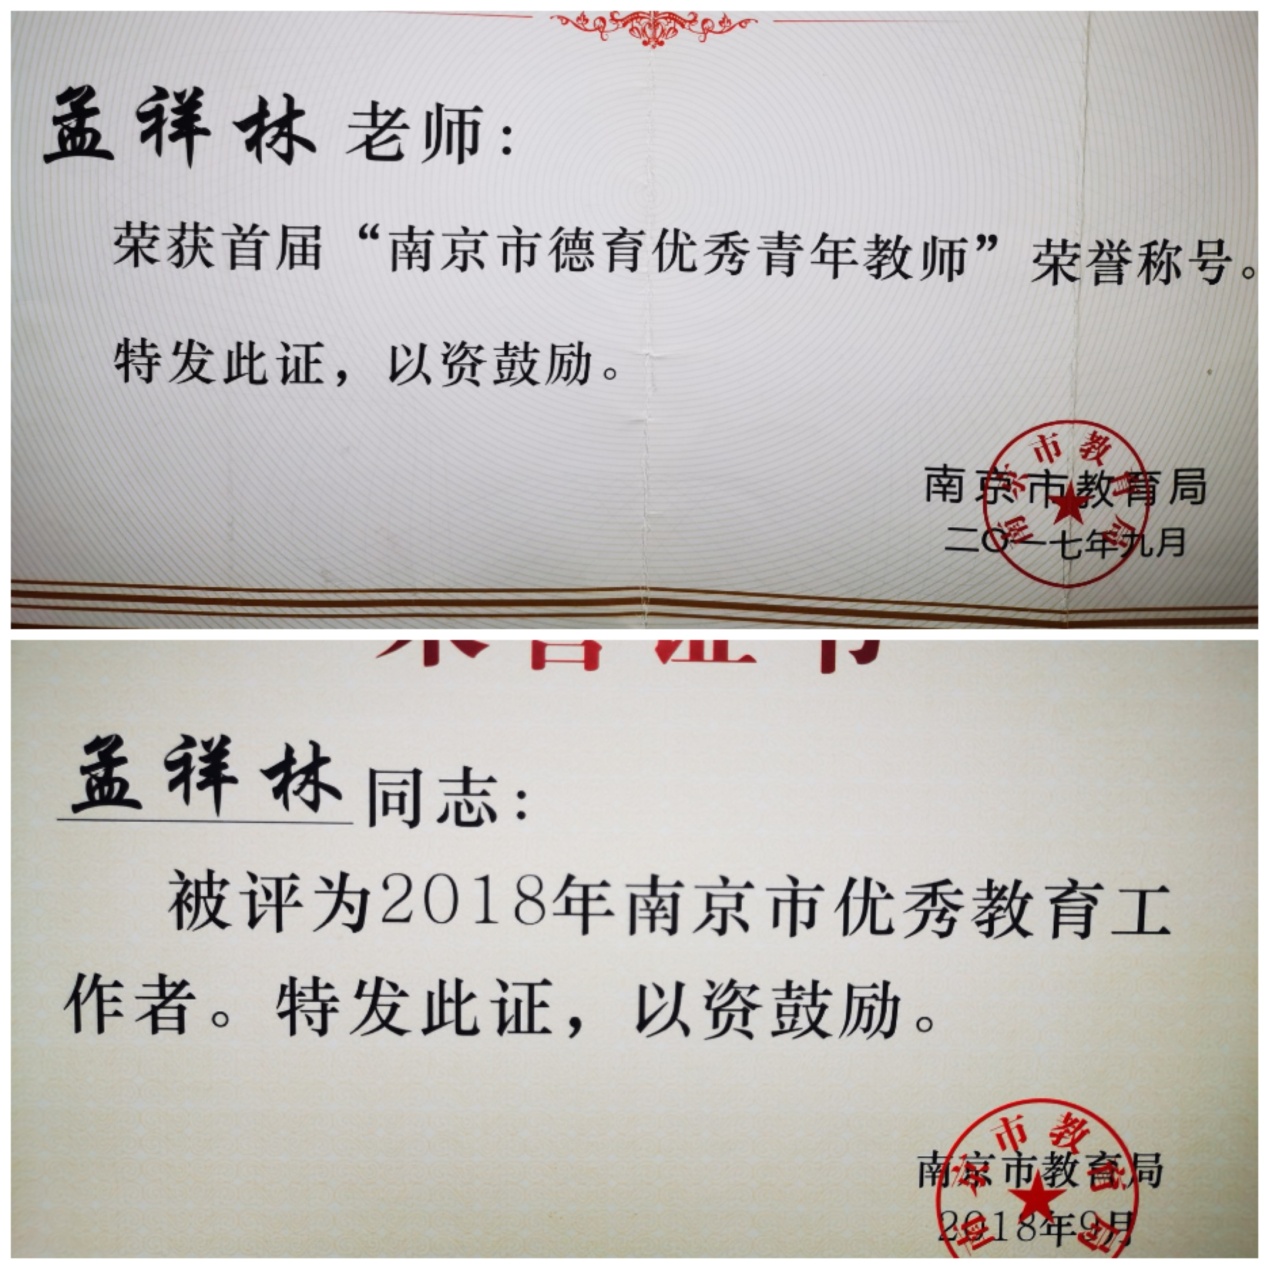 孟祥林老师：
荣获首届“南京市德育优秀青年教师”荣誉称号。
特发此证，以资鼓励。
南京市教育局
二〇一七年九月
南京市教育局
荣誉证书
孟祥林同志：
被评为2018年南京市优秀教育工
作者。特发此证，以资鼓励。
南京市教育局
2018年9月
南京市教育局